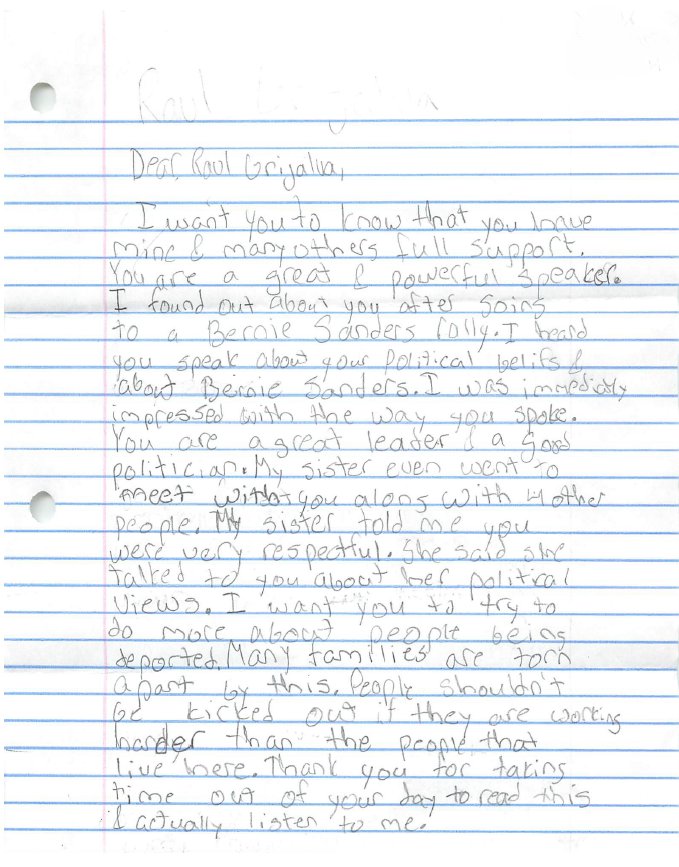 Raul
Dear, Raul Grijalva,
I want you to know that you have
mine & many others full support.
You are a great & powerful speaker.
I found out about you after going
to a Bernie Sanders rally. I heard
you speak about your political belifs &
about Bernie Sanders. I was immedictly
impressed with the way you spoke.
You are a great leader & a good
politician. My sister even went to
meet with you along with 4 other
people. My sister told me you
were very respectful. She said she
talked to you about her political
views. I want you to try to
do more about people being
deported. Many families are torn
apart by this. People shouldn't
be kicked out if they are working
harder than the people that
live here. Thank you for taking
time out of your day to read this
& actually listen to me.